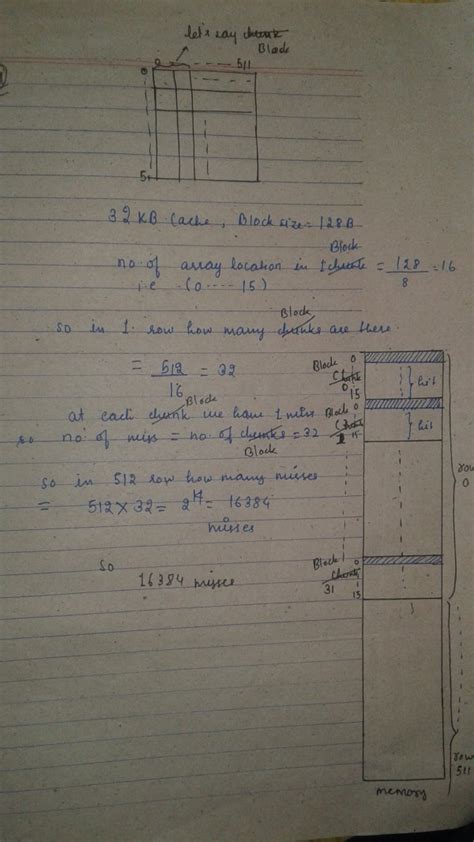 let's say chunk
Block
0 - - - - 511
0
51
32 KB Cache, Block size = 128B
Block
no of array location in 1 chunk = 128/8 = 16
i.e (0 ----- 15)
Block
so in 1 row how many chunks are there.
= 512/16 = 32
Block
at each chunk we have 1 miss
so no of miss = no of chunks = 32
Block
so in 512 row how many misses
= 512 x 32 = 2^14 = 16384
misses
so
16384 misses
Block 0
Chunk
0
15
hit
Block 0
Chunk
1
15
hit
row
0
Block 0
Chunk
31
15
row
511
memory